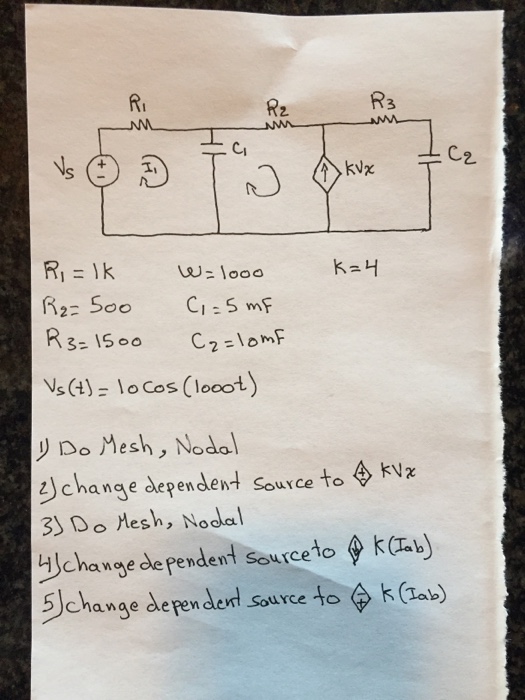 R1
R2
R3
Vs
+
-
I1
C1
kVx
C2
R1 = 1k W=1000 k=4
R2= 500 C1=5 mF
R3=1500 C2=10mF
Vs(t)= 10 cos(1000t)
1) Do Mesh, Nodal
2) change dependent source to kVx
3) Do Mesh, Nodal
4) change dependent source to k(Iab)
5) change dependent source to k(Iab)